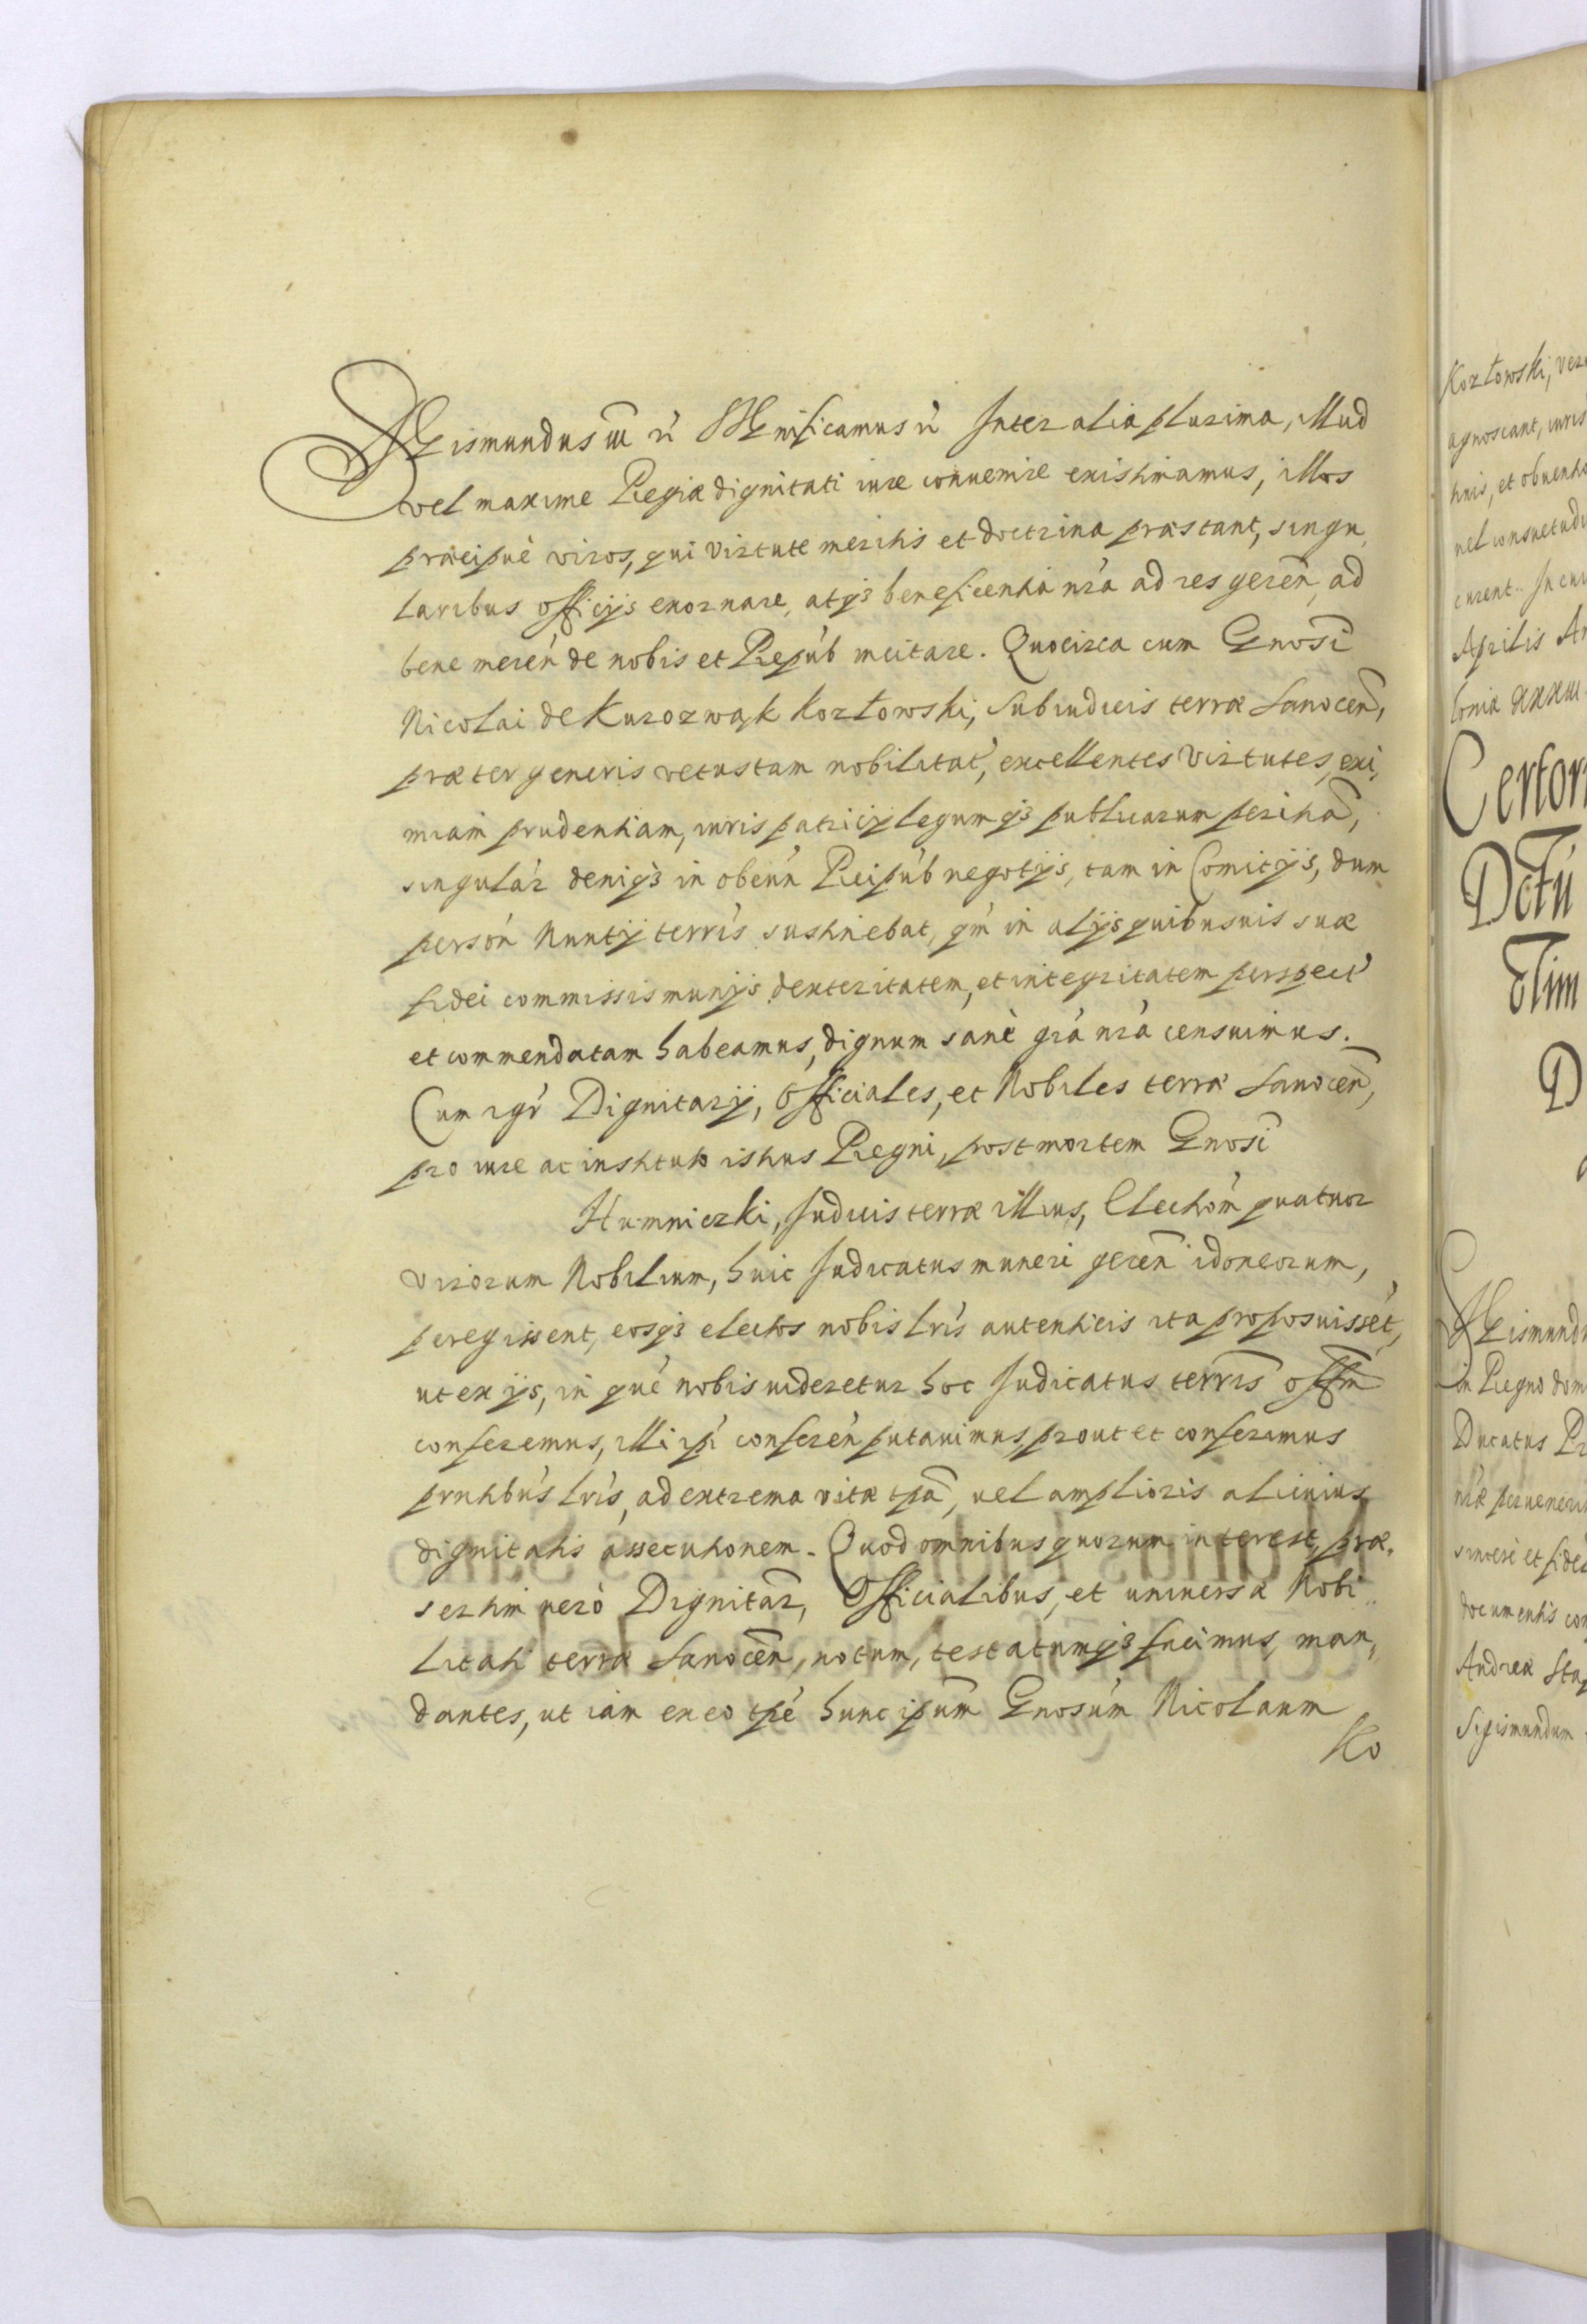 Sigismundus III rc̃ Significamus rc̃ Inter alia plurima, illud
vel maxime Regiæ dignitati iure conuenire existimamus, illos
præcipuè viros, qui virtute meritis et doctrina præstant, singu,
laribus officijs exornare, atq3 beneficentia nr̃a ad res geren̄, ad
bene meren̄ de nobis et Repub incitare. Quocirca cum Gnosi
Nicolai de Kurozwąk Kozłowski, Subiudicis terræ Sanocen̄,
præter generis vetustam nobilitat', excellentes virtutes, exi,
miam prudentiam, iuris patrij legumq3 publicarum peritiā,
singular̃ deniq3 in obeun̄ Reipub negotijs, tam in Comitijs, dum
person̄ Nuntij terris̃ sustinebat, qm̃ in alijs quibusuis suæ
fidei commissis munijs dexteritatem, et integritatem perspect'
et commendatam habeamus, dignum sanè gr̃a nr̃a censuimus.
Cum igr̃ Dignitarij, Officiales, et Nobiles terræ Sanocen̄,
pro iure ac instituto istius Regni, post mortem Gnosi
Humniczki, Judicis terræ illius, Electiom̃ quatuor
virorum Nobilium, huic Judicatus muneri geren̄ idoneorum,
peregissent, eosq3 electos nobis lr̃is autenticis ita proposuisset̃,
ut ex ijs, in quē nobis uideretur hoc Judicatus terrīs offm̄
conferemus, illi ip̃i conferen̄ putauimus, prout et conferimus
prntibus̃ lr̃is, ad extrema vitæ tpā, uel amplioris alicuius
dignitatis assecutionem. Quod omnibus quorum interest, præ,
sertim uerò Dignitar̃, Officialibus, et uniuersæ Nobi
litati terræ Sanocen̄, notum, testatumq3 facimus, man,
dantes, ut iam ex eo tpē hunc ipsum̃ Gnosum̃ Nicolaum
Ko
Kozłowski, ver
agnoscant, iuris
tinis, et obuentio
uel consuetudi
curent. In cui
Aprilis An
loniæ XXXIII
Certor
Dctū
Etim
D
Sigismundu
in Regno dom
Ducatus Pr
nr̃æ peruenerin
sincerè et fidel
documentis com
Andreæ Stap
Sigismundum